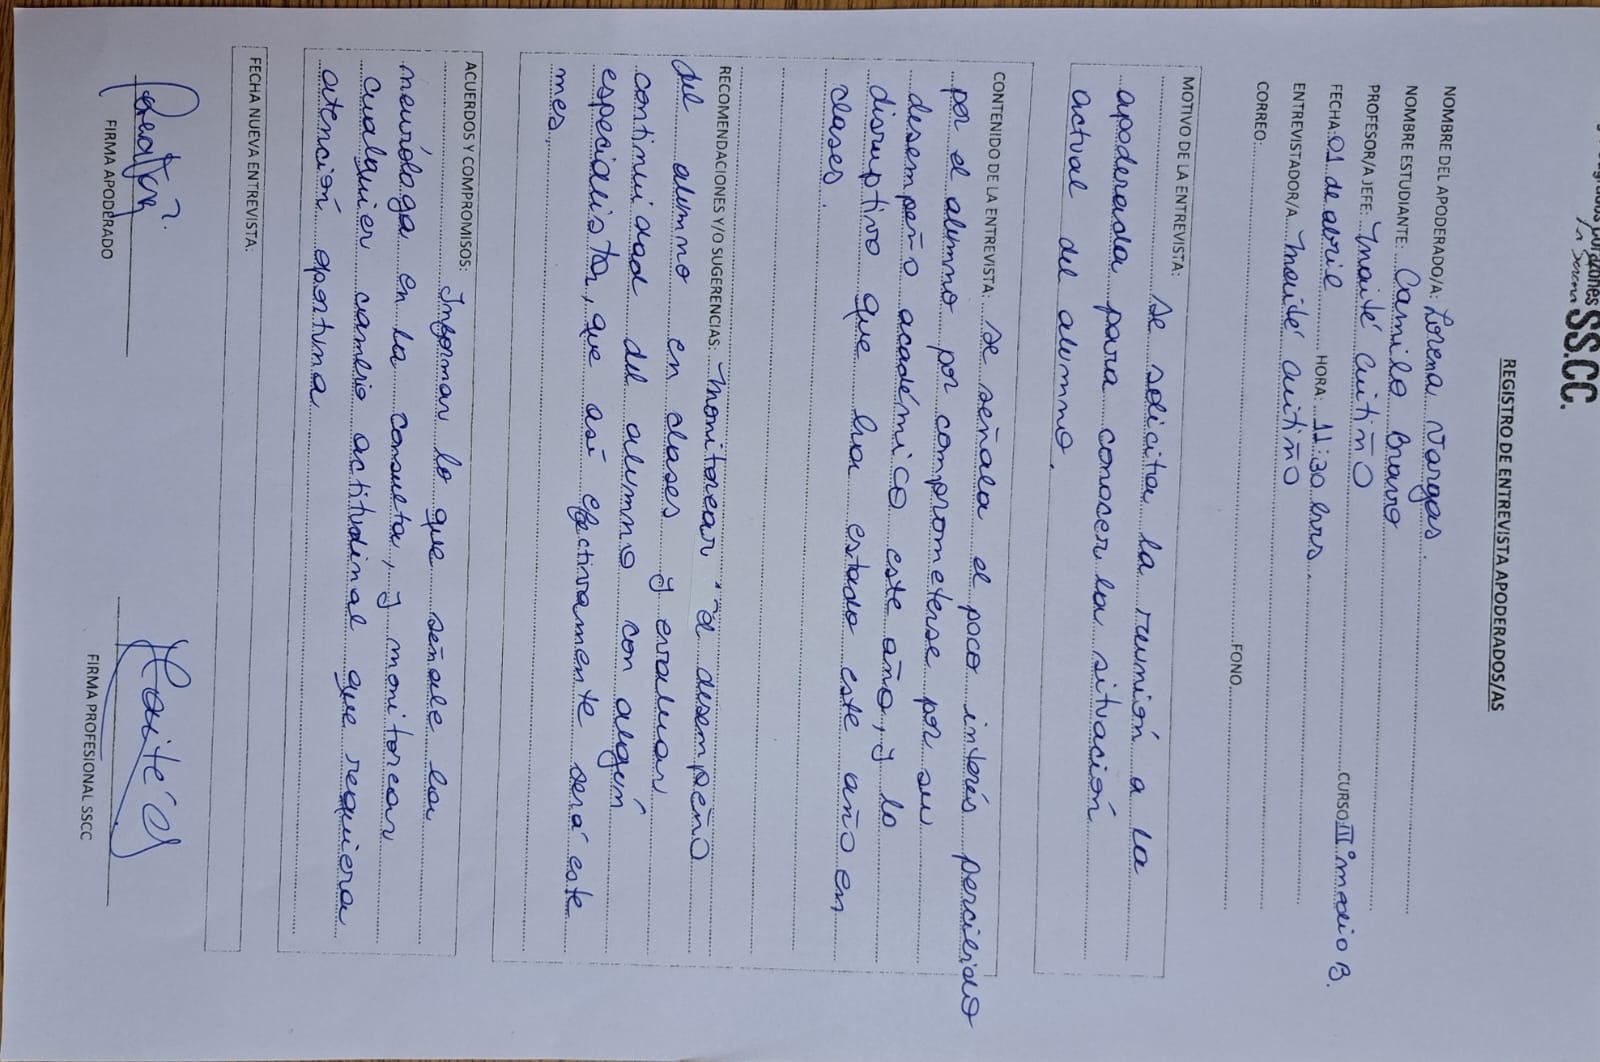 Corazones SS.CC.
La Serena
REGISTRO DE ENTREVISTA APODERADOS/AS
NOMBRE DEL APODERADO/A: Lorena Vargas.
NOMBRE ESTUDIANTE: Camilo Bravo
PROFESOR/A JEFE: Maité Cuitiño
FECHA: 01 de abril HORA: 11:30 hrs. CURSO: III° medio B.
ENTREVISTADOR/A Maité Cuitiño
CORREO: FONO
MOTIVO DE LA ENTREVISTA: Se solicita la reunión a la
apoderada para conocer la situación
actual del alumno.
CONTENIDO DE LA ENTREVISTA: Se señala el poco interés percibido
por el alumno por comprometerse por su
desempeño académico este año, y lo
disruptivo que ha estado este año en
clases.
RECOMENDACIONES Y/O SUGERENCIAS: Monitorear el desempeño
del alumno en clases y evaluar
continuidad del alumno con algún
especialista, que así efectivamente será este
mes.
ACUERDOS Y COMPROMISOS: Informar lo que señale la
neuróloga en la consulta, y monitorear
cualquier cambio actitudinal que requiera
atención oportuna.
FECHA NUEVA ENTREVISTA:
FIRMA APODERADO
Maité C
FIRMA PROFESIONAL SSCC